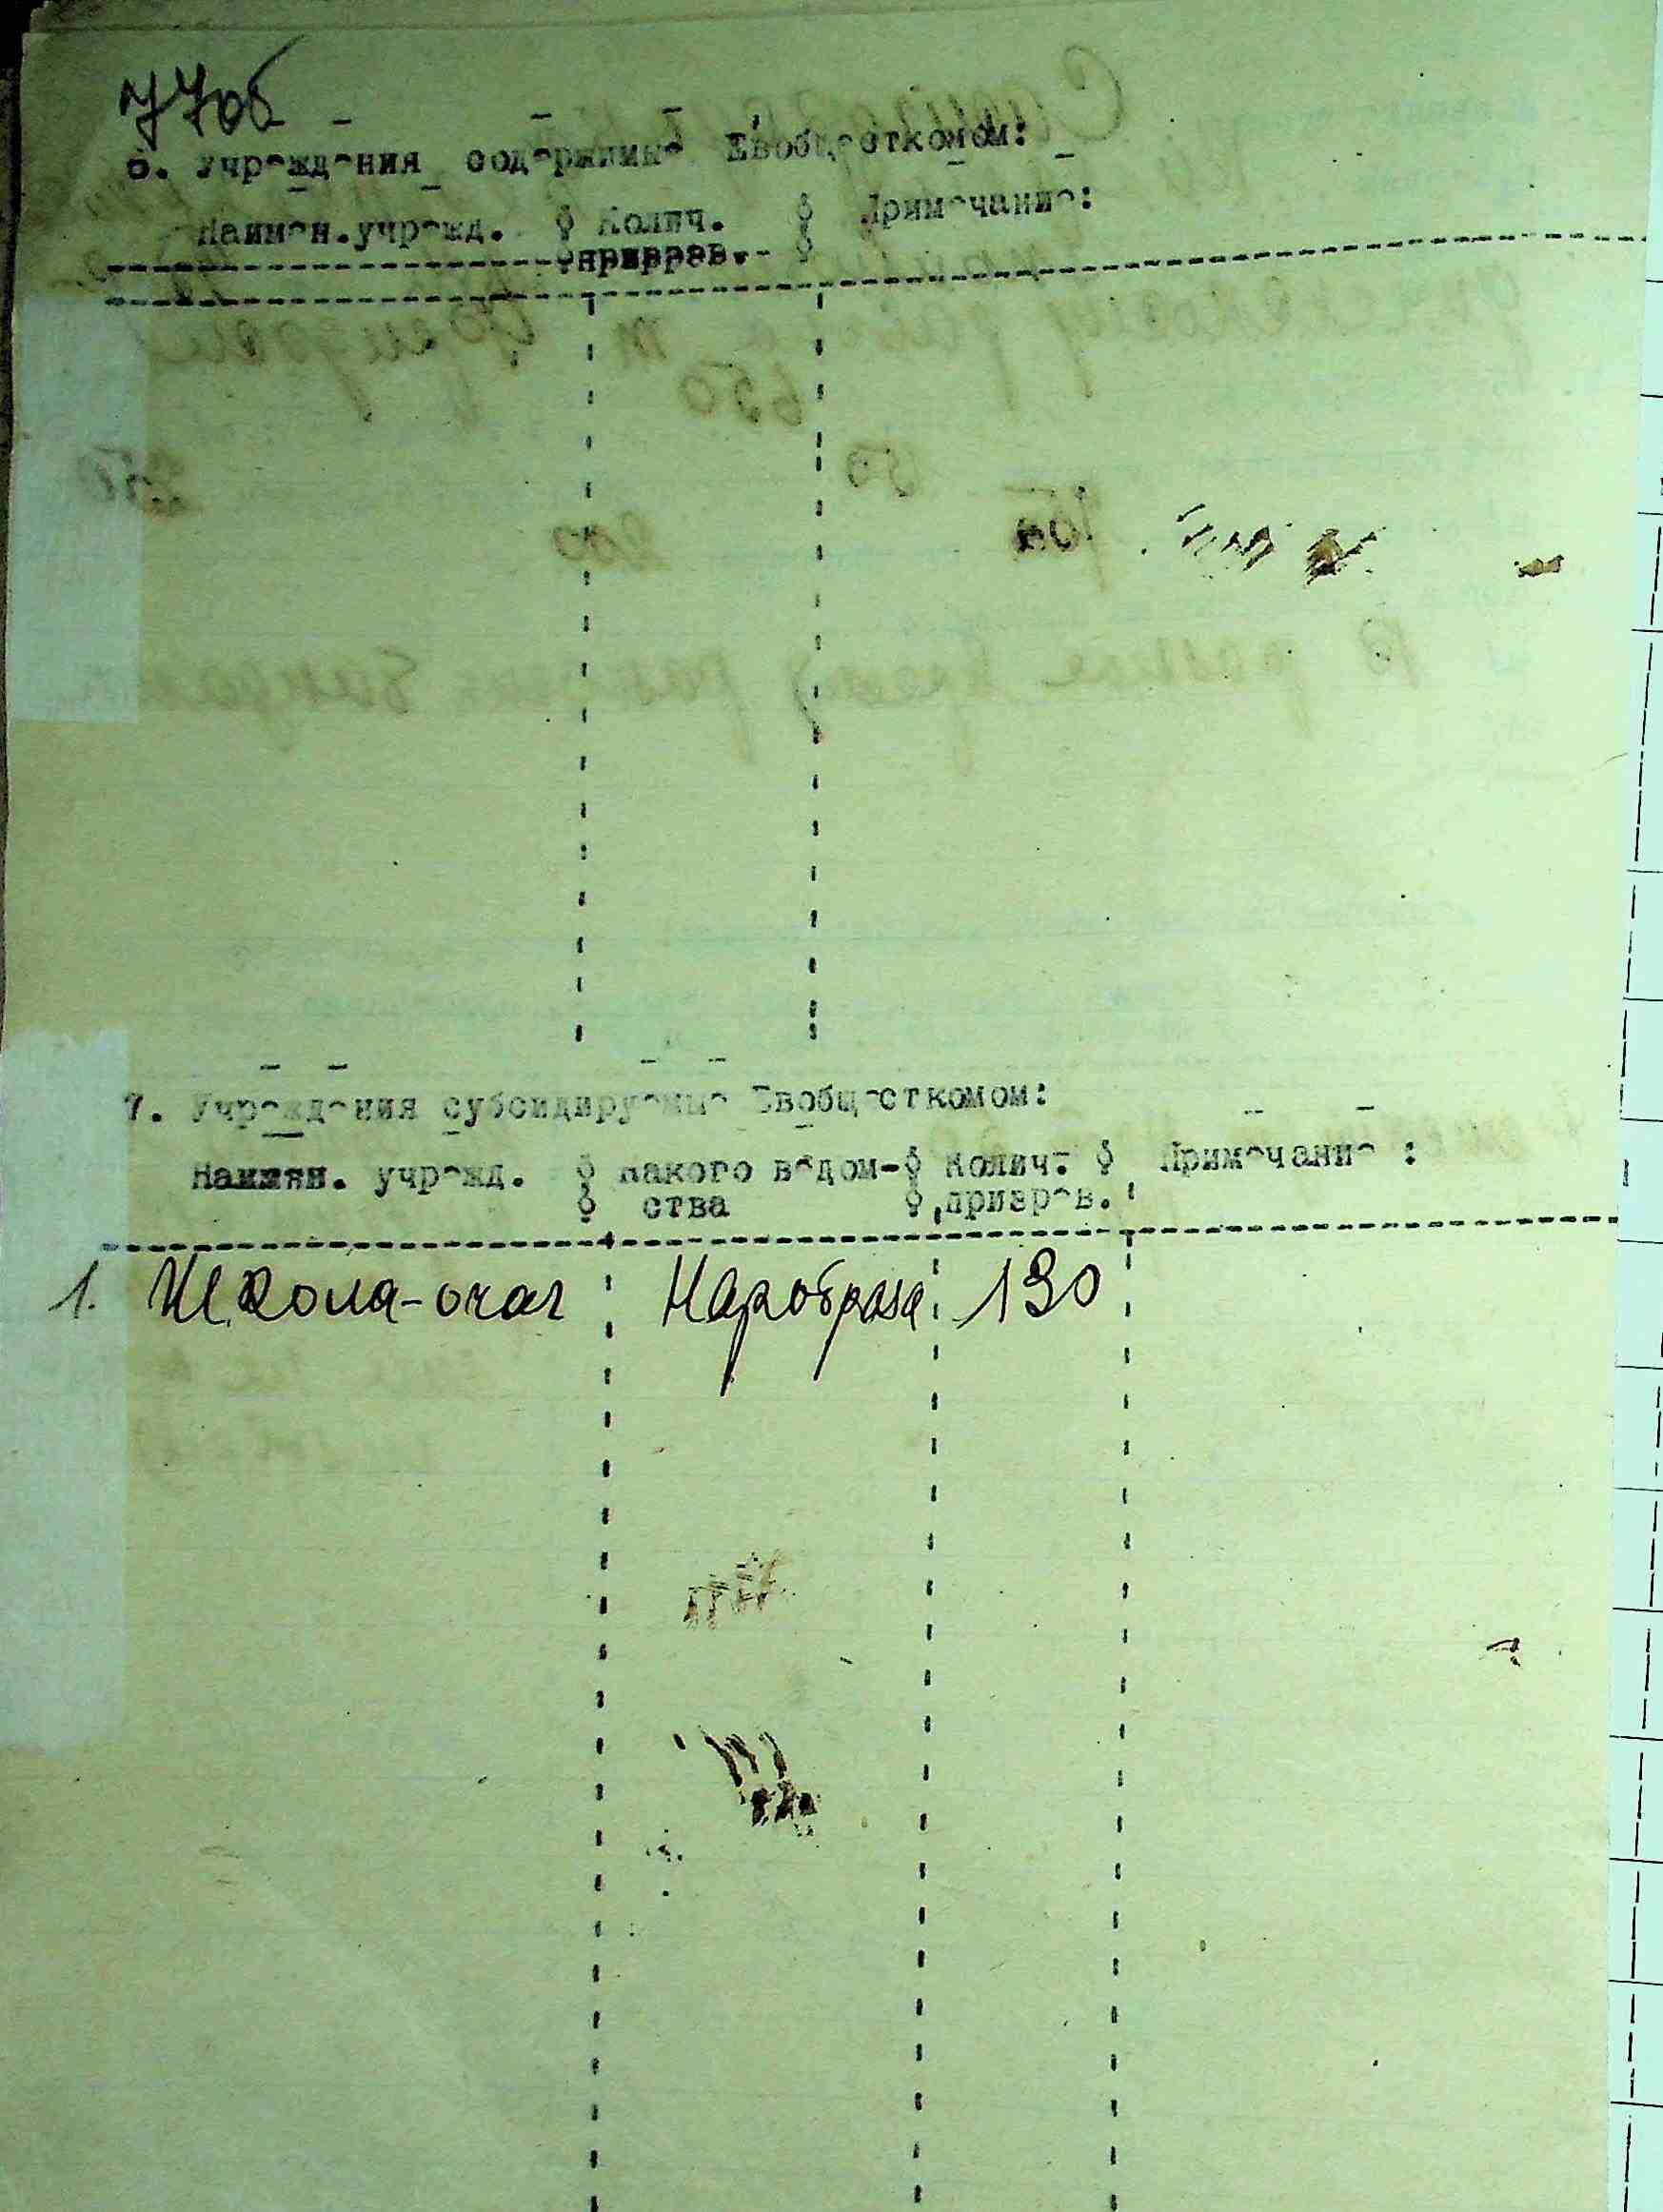 77об
6. Учреждения содержимые Евобщесткомом:
Наимен.учрежд. Колич. Примечание:
призрев.
7. Учреждения субсидируемые Евобщесткомом:
Наимен. учрежд. Какого ведом- Колич. Примечание:
ства призрев.
1. Школа-очаг Наробраза 130